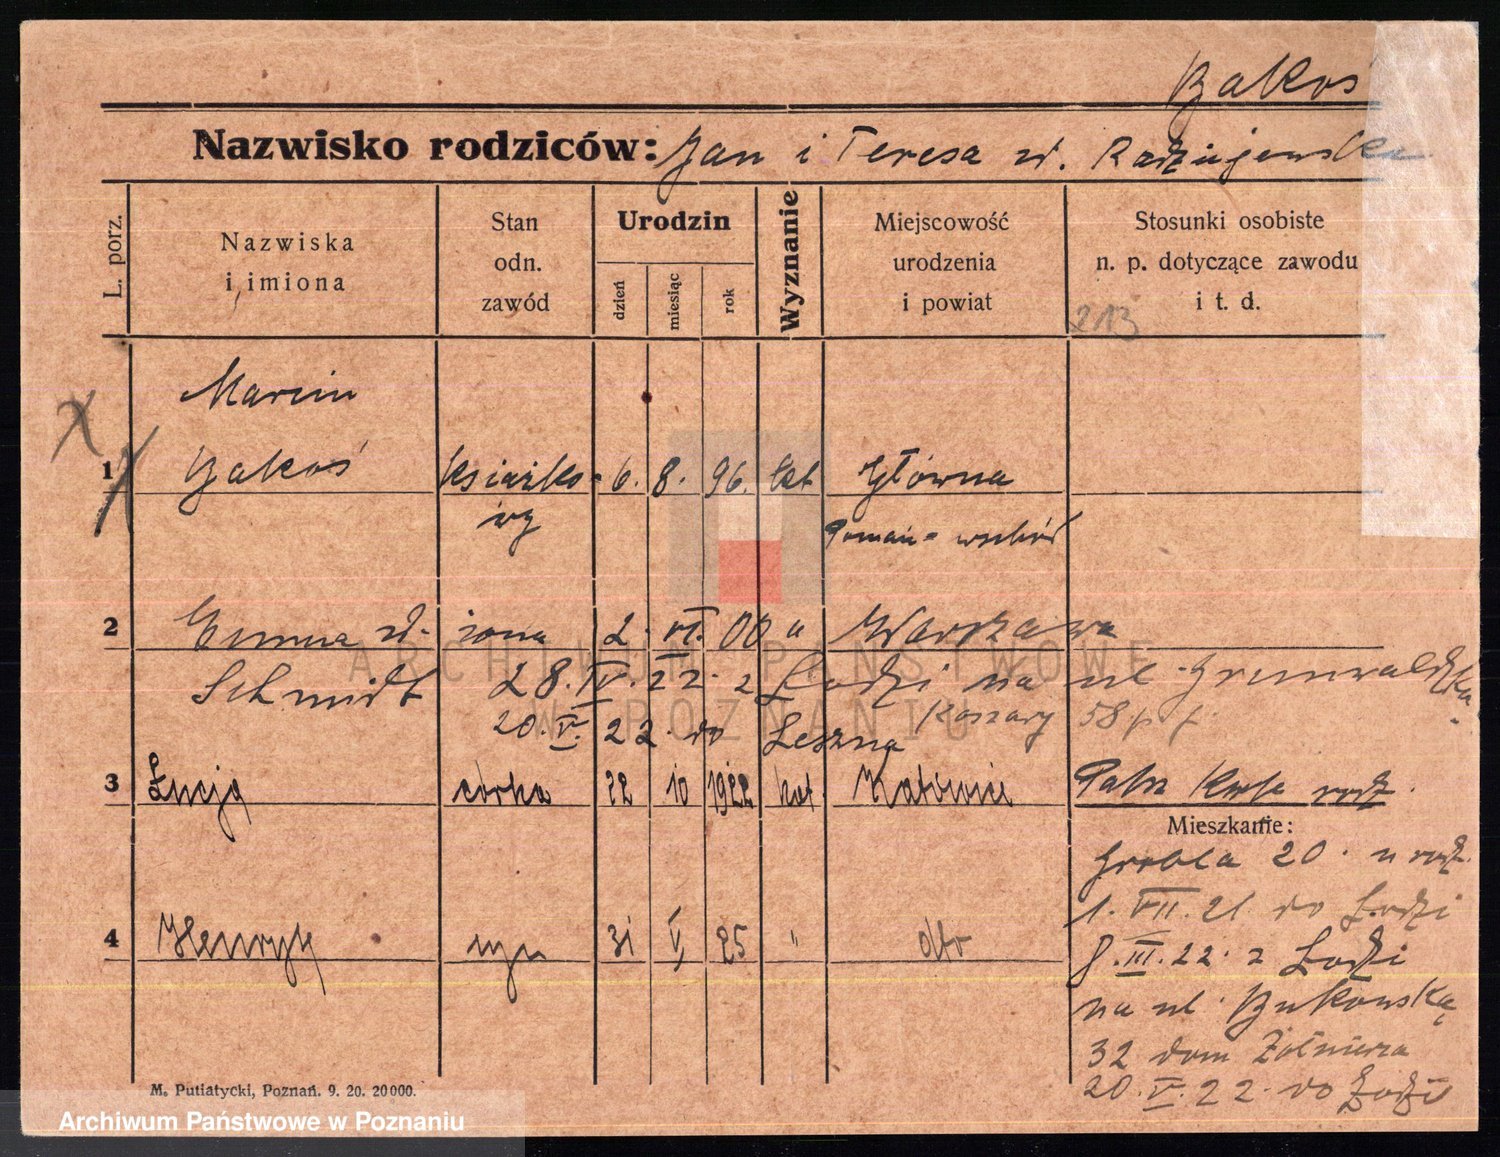 Bakoś
Nazwisko rodziców: Jan i Teresa zd. Radziejewska
L. porz.
Nazwiska
i imiona
Stan
odn.
zawód
Urodzin
dzień
miesiąc
rok
Wyznanie
Miejscowość
urodzenia
i powiat
Stosunki osobiste
n. p. dotyczące zawodu
i t. d.
213
Marcin
1 Bakoś książko= 6. 8. 96. kat Główna
wy Poznań= wschód
2 Emma zd. żona 2. VI. 00 " Warszawa
Schmidt 28. IV. 22. z Łodzi na ul. Grunwaldzka
Koszary 58 p. p.
20. V. 22. do Leszna
3 Łucja córka 22 10 1922 kat. Katowice
Mieszkanie:
Grobla 20. u rodz.
1. VII. 21. do Łodzi
4 Henryk syn 31 V 25 " dto
8. III. 22. z Łodzi
na ul. Bukowską
32 dom Żołnierza
20. V. 22. do Łodzi
M. Putiatycki, Poznań. 9. 20. 20000.
ARCHIWUM PAŃSTWOWE
W POZNANIU
Archiwum Państwowe w Poznaniu